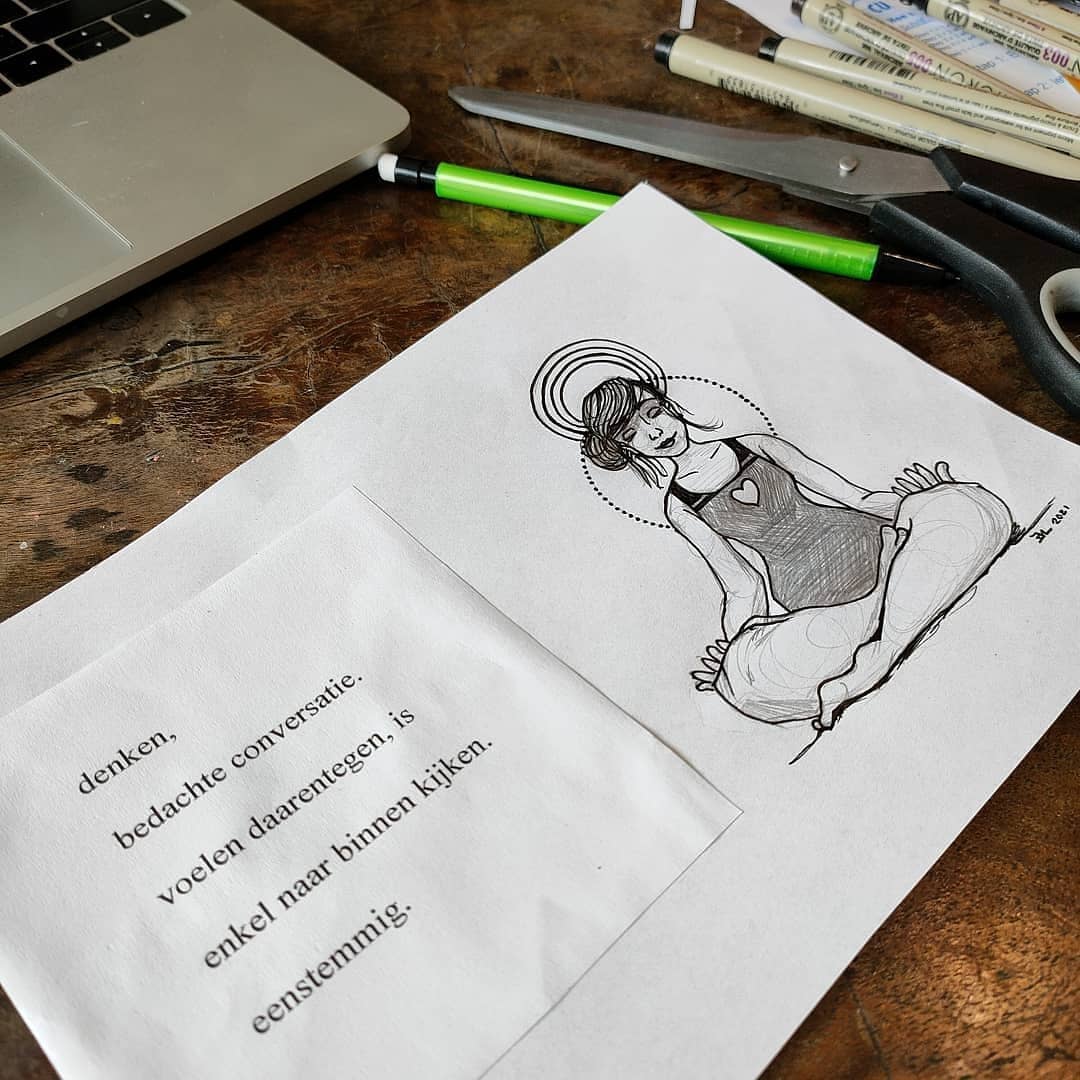 denken,
bedachte conversatie.
voelen daarentegen, is
enkel naar binnen kijken.
eenstemmig.
2021
N°003
005